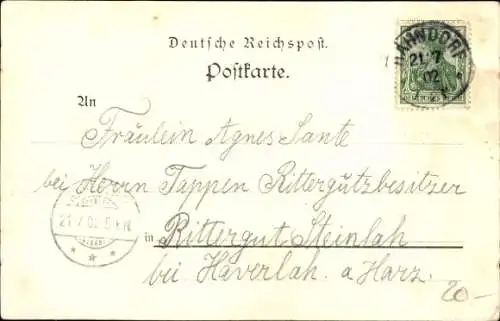 Deutsche Reichspost.
Postkarte.
HAHNDORF
21/7
02
An
Fräulein Agnes Sante
bei Herrn Tappen Rittergutzbesitzer
21/7 02
in Rittergut Steinlah
bei Haverlah. a Harz.
20-